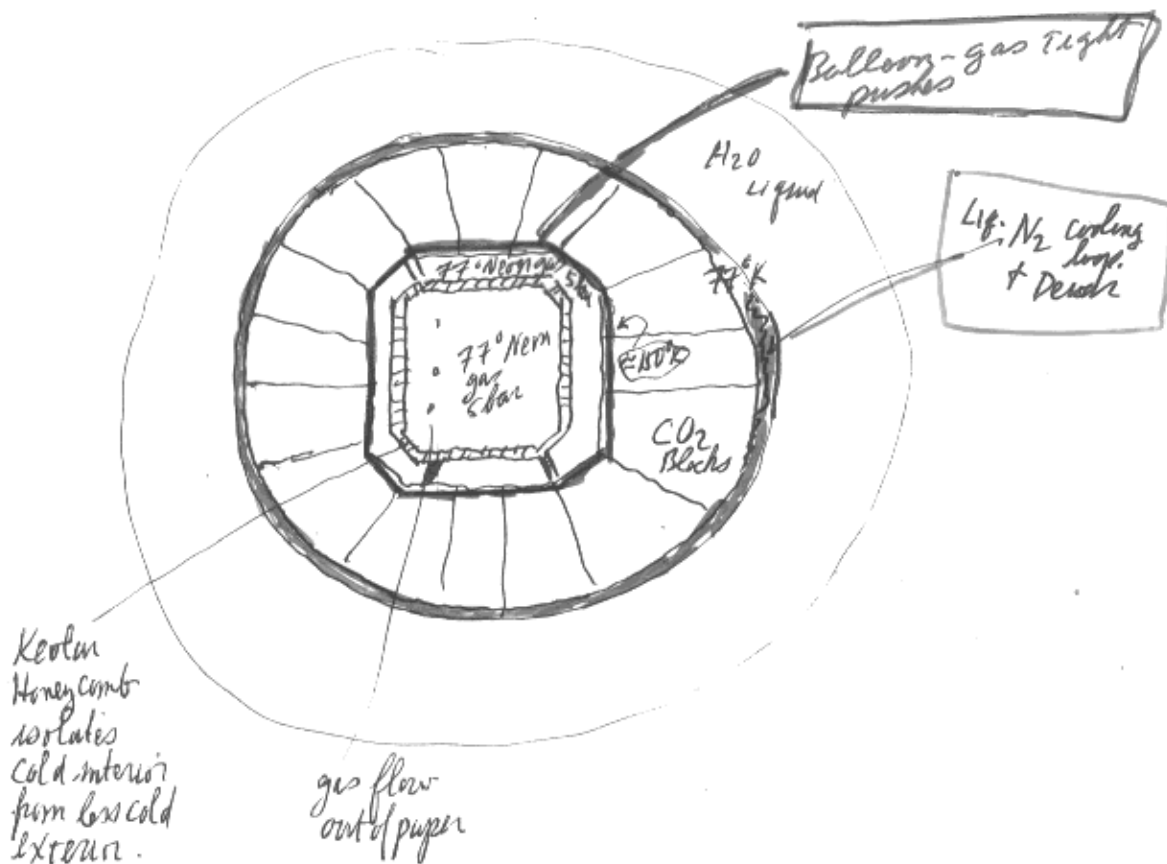 Balloon-gas Tight
pushes
H2O
Liquid
Liq. N2 cooling
loop.
+ Dewar
77°K
77° Neon gas
5 bar
77° Neon
gas
5 bar
≈150°K
CO2
Blocks
Kevlar
Honeycomb
isolates
cold interior
from less cold
exterior.
gas flow
out of paper